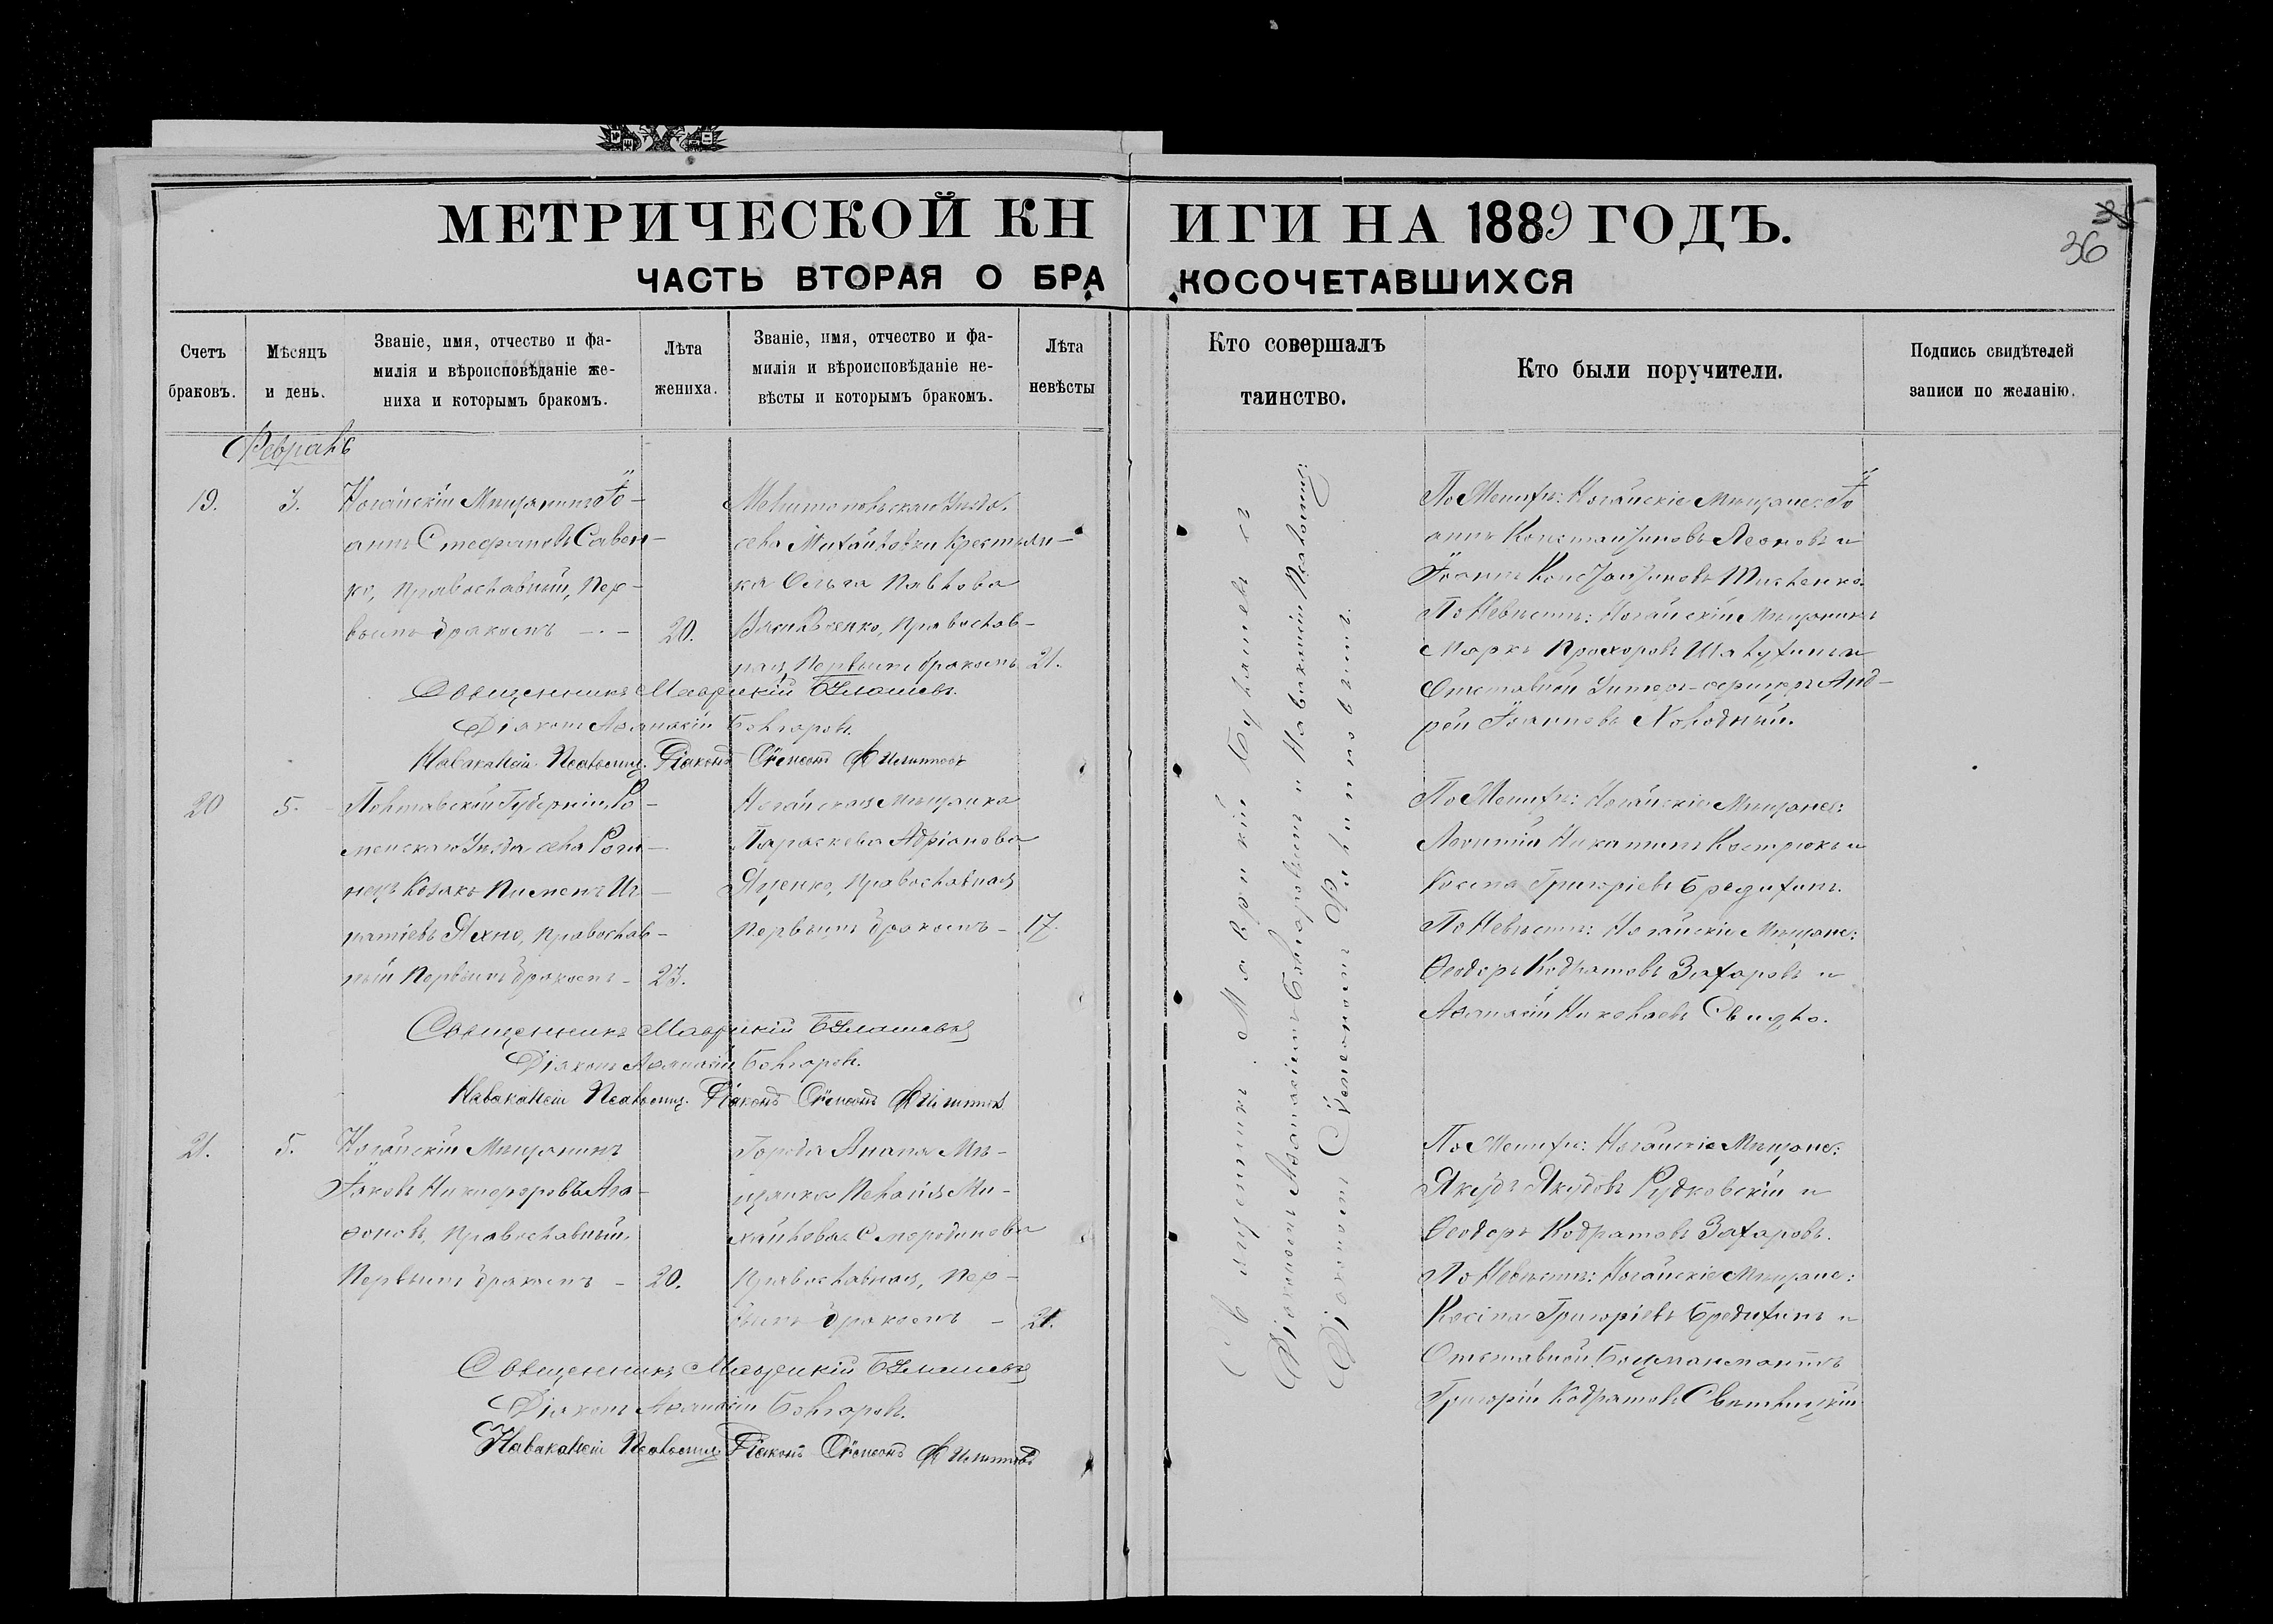 35
36
МЕТРИЧЕСКОЙ КНИГИ НА 1889 ГОДЪ.
ЧАСТЬ ВТОРАЯ О БРАКОСОЧЕТАВШИХСЯ
Счетъ браковъ.
Мѣсяцъ и день.
Званіе, имя, отчество и фа-
милія и вѣроисповѣданіе же-
ниха и которымъ бракомъ.
Лѣта жениха.
Званіе, имя, отчество и фа-
милія и вѣроисповѣданіе не-
вѣсты и которымъ бракомъ.
Лѣта невѣсты
Кто совершалъ
таинство.
Кто были поручители.
Подпись свидѣтелей
записи по желанію.
Февраль
19.
3.
Ногайскій Мѣщанинъ Іо-
аннъ Стефановъ Савен-
ко, Православный, Пер-
вымъ бракомъ
20.
Мелитопольскаго Уѣзда.
села Михайловки Крестьян-
ка Ольга Павлова
Православ-
ная, Первымъ бракомъ
21.
Священникъ Маврикій
Діаконъ Аѳанасій Болгаровъ.
Псаломщ. Діаконъ Сѵмеонъ Филипповъ
По Женихѣ: Ногайскіе Мѣщане: Іо
аннъ Константиновъ Леоновъ и
Іоаннъ Константиновъ
По Невѣстѣ: Ногайскій Мѣщанинъ
Маркъ Прохоровъ и
Отставной Унтеръ-офицеръ Анд-
рей Іоанновъ Холодный.
20
5.
Полтавской Губерніи, Ро-
менскаго Уѣзда села
Козакъ Пименъ Иг-
натіевъ Яхно, Православ-
ный Первымъ бракомъ
23.
Ногайская Мѣщанка
Параскева Адріанова
Яценко, Православная
Первымъ бракомъ
17.
Священникъ Маврикій
Діаконъ Аѳанасій Болгаровъ.
Псаломщ. Діаконъ Сѵмеонъ Филипповъ
По Женихѣ: Ногайскіе Мѣщане:
Леонтій Кострюкъ и
Косма Григоріевъ Бредихинъ.
По Невѣстѣ: Ногайскіе Мѣщане:
Ѳеодоръ Кодратовъ Захаровъ и
Аѳанасій Николаевъ
21.
5.
Ногайскій Мѣщанинъ
Іаковъ Никифоровъ Ага-
ѳоновъ, Православный,
Первымъ бракомъ
20.
Города Анапа Мѣ-
щанка Пелагія Ми-
хайлова Смородинова
Православная, Пер-
вымъ бракомъ
21.
Священникъ Маврикій
Діаконъ Аѳанасій Болгаровъ.
Псаломщ. Діаконъ Сѵмеонъ Филипповъ
По Женихѣ: Ногайскіе Мѣщане:
Якубъ Якубовъ Рудковскій и
Ѳеодоръ Кодратовъ Захаровъ.
По Невѣстѣ: Ногайскіе Мѣщане:
Косма Григоріевъ Бредихинъ и
Отставной
Григорій Кодратовъ
Священникъ Маврикій съ
Діакономъ Аѳанасіемъ Болгаровымъ и
Діакономъ Сѵмеономъ Филипповымъ.